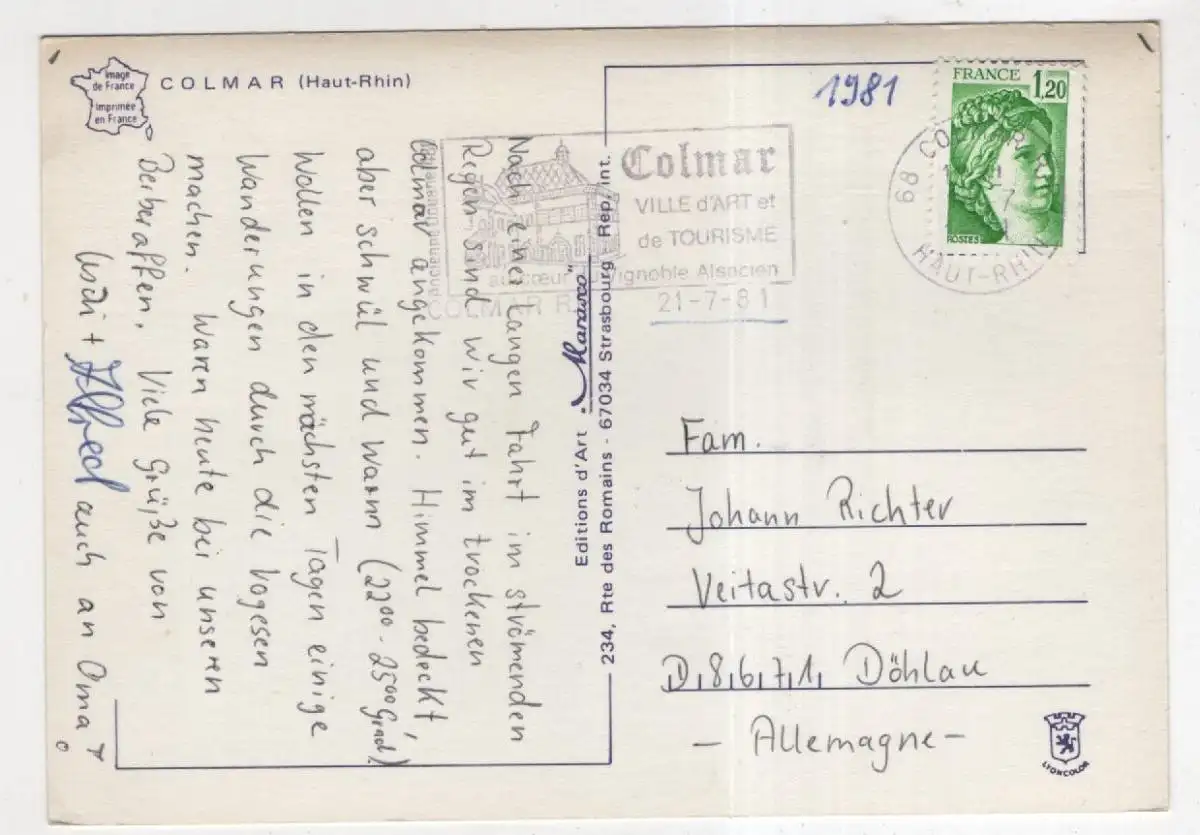 Image
de France
Imprimée
en France
COLMAR (Haut-Rhin)
Nach einer langen Fahrt im strömenden
Regen sind wir gut im trockenen
Colmar angekommen. Himmel bedeckt,
aber schwül und warm (22°° - 25°° Grad)
Wollen in den nächsten Tagen einige
Wanderungen durch die Vogesen
machen. Waren heute bei unseren
Berberaffen. Viele Grüße von
+ Alfred auch an Oma
Editions d'Art "Marasco"
234, Rte des Romains - 67034 Strasbourg Rep. int.
Colmar
VILLE d'ART et
de TOURISME
au cœur du Vignoble Alsacien
COLMAR R.
21-7-81
1981
FRANCE 1,20
POSTES
68 COLMAR
HAUT-RHIN
Fam.
Johann Richter
Veitastr. 2
D,8,6,7,1, Döhlau
- Allemagne -
LYONCOLOR